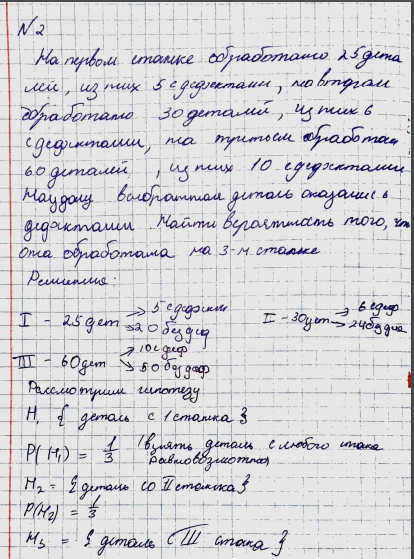 N2
На первом станке обработано 25 дета
лей, из них 5 с дефектами, на втором
обработано 30 деталей, из них 6
с дефектами, на третьем обработан
60 деталей, из них 10 с дефектами
Наудачу выбранная деталь оказалась
дефектами Найти вероятность того, что
она обработана на 3-м станке
Решение:
I - 25 дет → 5 с дефект → 20 без деф
I - 30 дет → 6 с деф → 24 без деф
III - 60 дет → 10 с деф → 50 без деф
Рассмотрим гипотезу
H₁ { деталь с 1 станка }
P(H₁) = 1/3 (взять деталь с любого станка
равновозможна
H₂ = { деталь со II станка }
P(H₂) = 1/3
H₃ = { деталь с III станка }